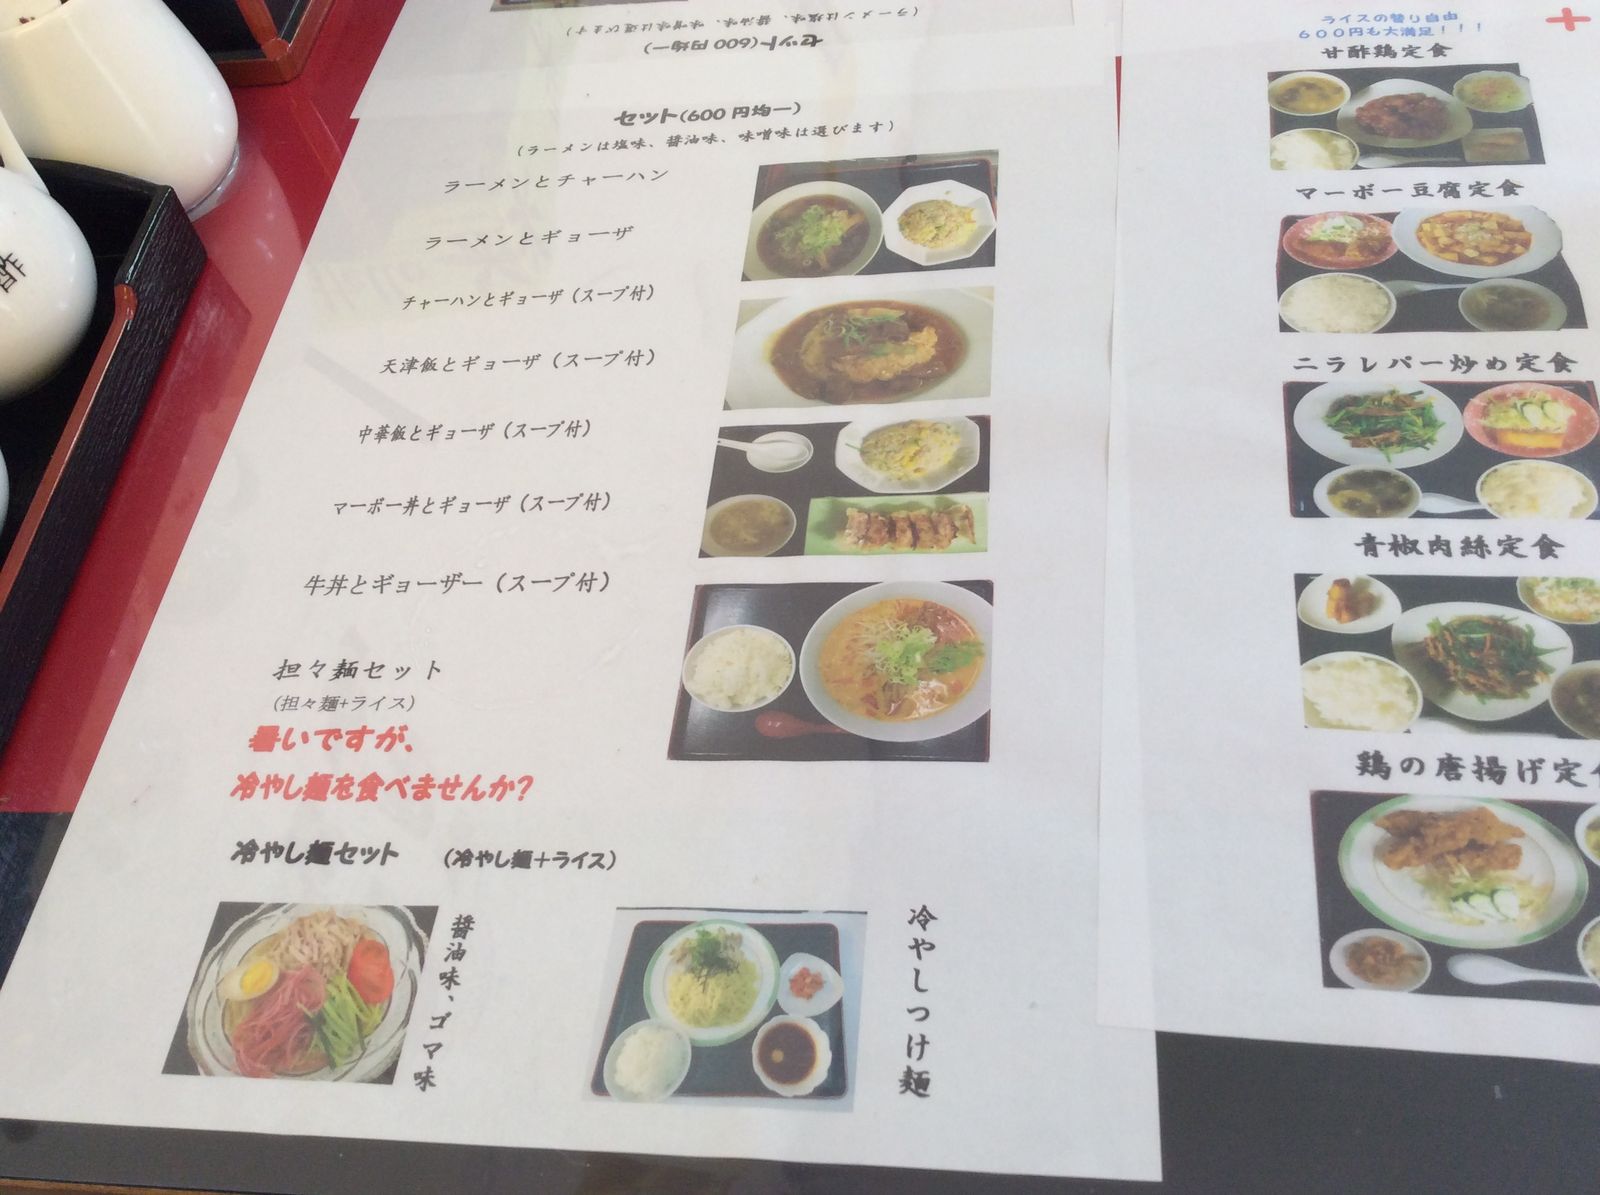 (ラーメンは塩味、醤油味、味噌味は選びます)
セット(600円均一)
セット(600円均一)
(ラーメンは塩味、醤油味、味噌味は選びます)
ラーメンとチャーハン
ラーメンとギョーザ
チャーハンとギョーザ(スープ付)
天津飯とギョーザ(スープ付)
中華飯とギョーザ(スープ付)
マーボー丼とギョーザ(スープ付)
牛丼とギョーザー(スープ付)
担々麺セット
(担々麺+ライス)
暑いですが、
冷やし麺を食べませんか?
冷やし麺セット (冷やし麺+ライス)
醤油味、ゴマ味
冷やしつけ麺
ライスの替り自由
600円も大満足!!!
甘酢鶏定食
マーボー豆腐定食
ニラレバー炒め定食
青椒肉絲定食
鶏の唐揚げ定